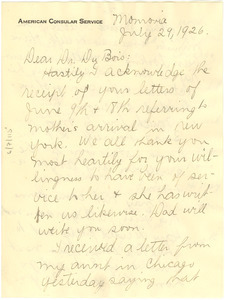 AMERICAN CONSULAR SERVICE
Monrovia
July 29, 1926.
Dear Dr. Du Bois:
Hastily I acknowledge the
receipt of your letters of
June 9th & 8th referring to
mother's arrival in New
York. We all thank you
most heartily for your wil-
lingness to have been of ser-
vice to her & she has writ-
ten us likewise. Dad will
write you soon.
I received a letter from
my aunt in Chicago
yesterday saying that